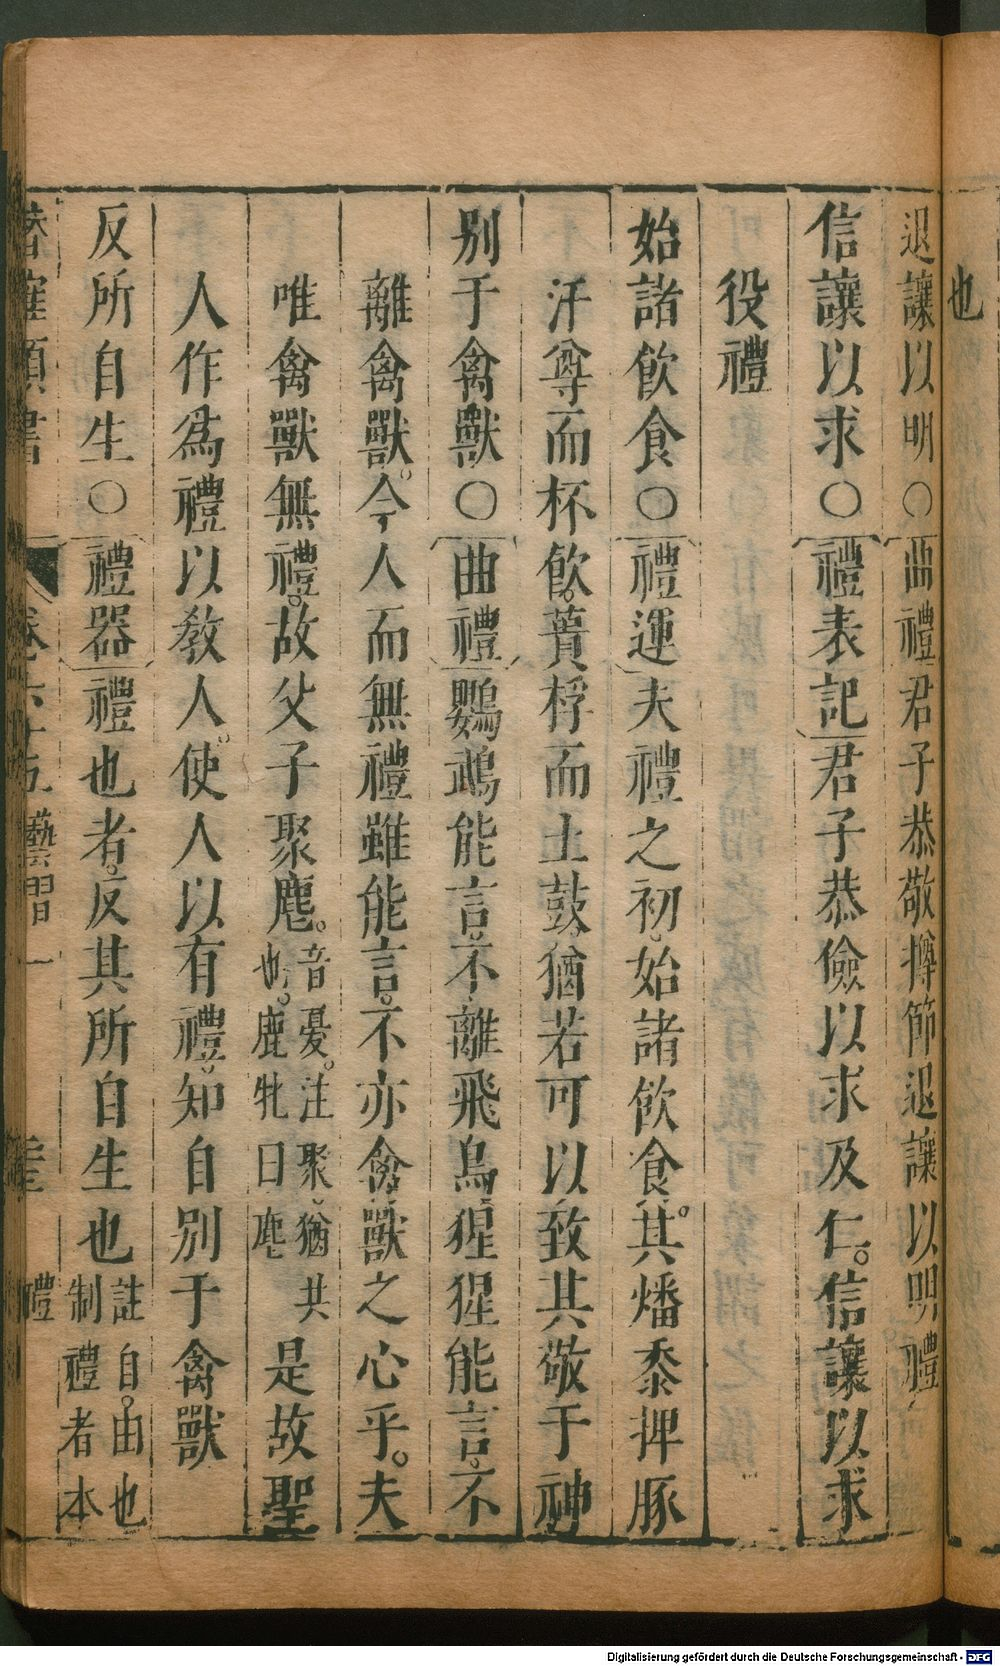 也
退讓以明○曲禮君子恭敬撙節退讓以明禮
信讓以求○禮表記君子恭儉以求役仁信讓以求
役禮
始諸飲食○禮運夫禮之初始諸飲食其燔黍捭豚
汙尊而杯飲蕢桴而土鼓猶若可以致其敬于神
別于禽獸○曲禮鸚鵡能言不離飛鳥猩猩能言不
離禽獸今人而無禮雖能言不亦禽獸之心乎夫
唯禽獸無禮故父子聚麀音憂注聚猶共也鹿牝曰麀是故聖
人作爲禮以教人使人以有禮知自別于禽獸
反所自生○禮器禮也者反其所自生也註自由也制禮者本
類書 卷六十五 藝習一 禮
Digitalisierung gefördert durch die Deutsche Forschungsgemeinschaft - DFG